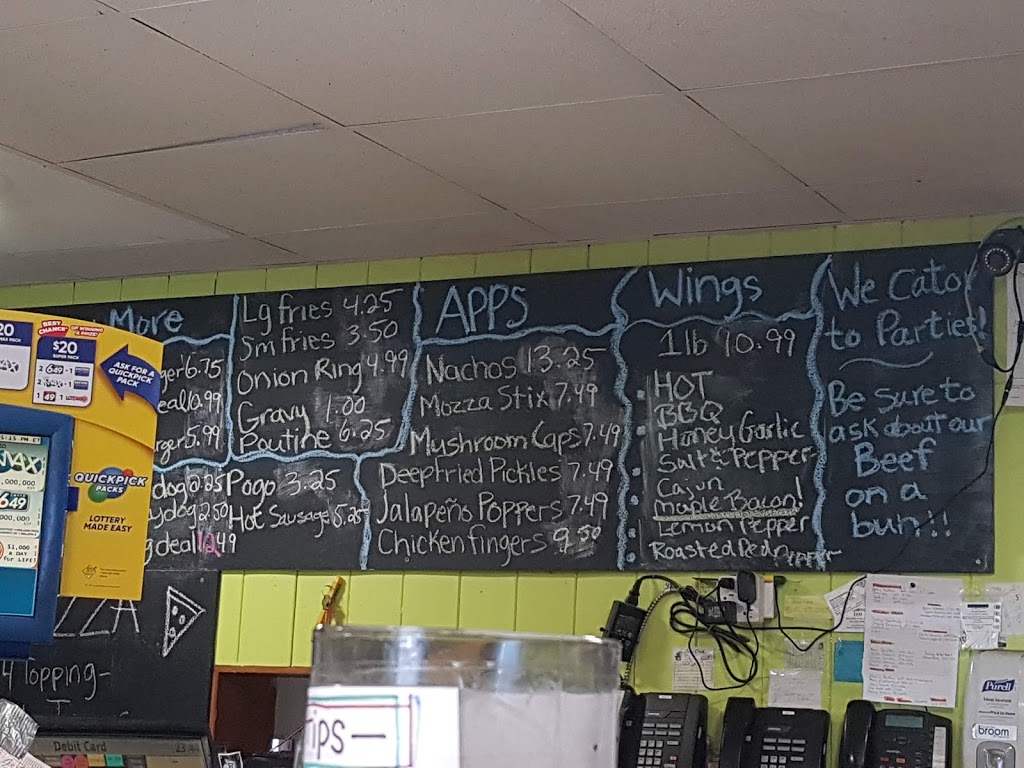 More
ger 6.75
eal 10.99
rger 5.99
dog
ydog 2.50
gdeal 12.49
Lg fries 4.25
Sm fries 3.50
Onion Ring 4.99
Gravy 1.00
Poutine 6.25
Pogo 3.25
Hot Sausage 5.25
APPS
Nachos 13.25
Mozza Stix 7.49
Mushroom Caps 7.49
Deepfried Pickles 7.49
Jalapeño Poppers 7.49
Chicken fingers 9.50
Wings
1lb 10.99
HOT
BBQ
Honey Garlic
Salt & Pepper
Cajun
maple Bacon!
Lemon Pepper
Roasted Red
We Cator
to Parties!
Be sure to
ask about our
Beef
on a
bun!!
20
BEST
CHANCE
$20
SUPER PACK
2 6/49 - 1
1 49 1
ASK FOR A
QUICKPICK
PACK
QUICKPICK
PACKS
LOTTERY
MADE EASY
MAX
000,000
649
000,000
$1,000
A DAY
for LIFE
ZZA
4 Topping-
Debit Card
ips—
Purell
broom